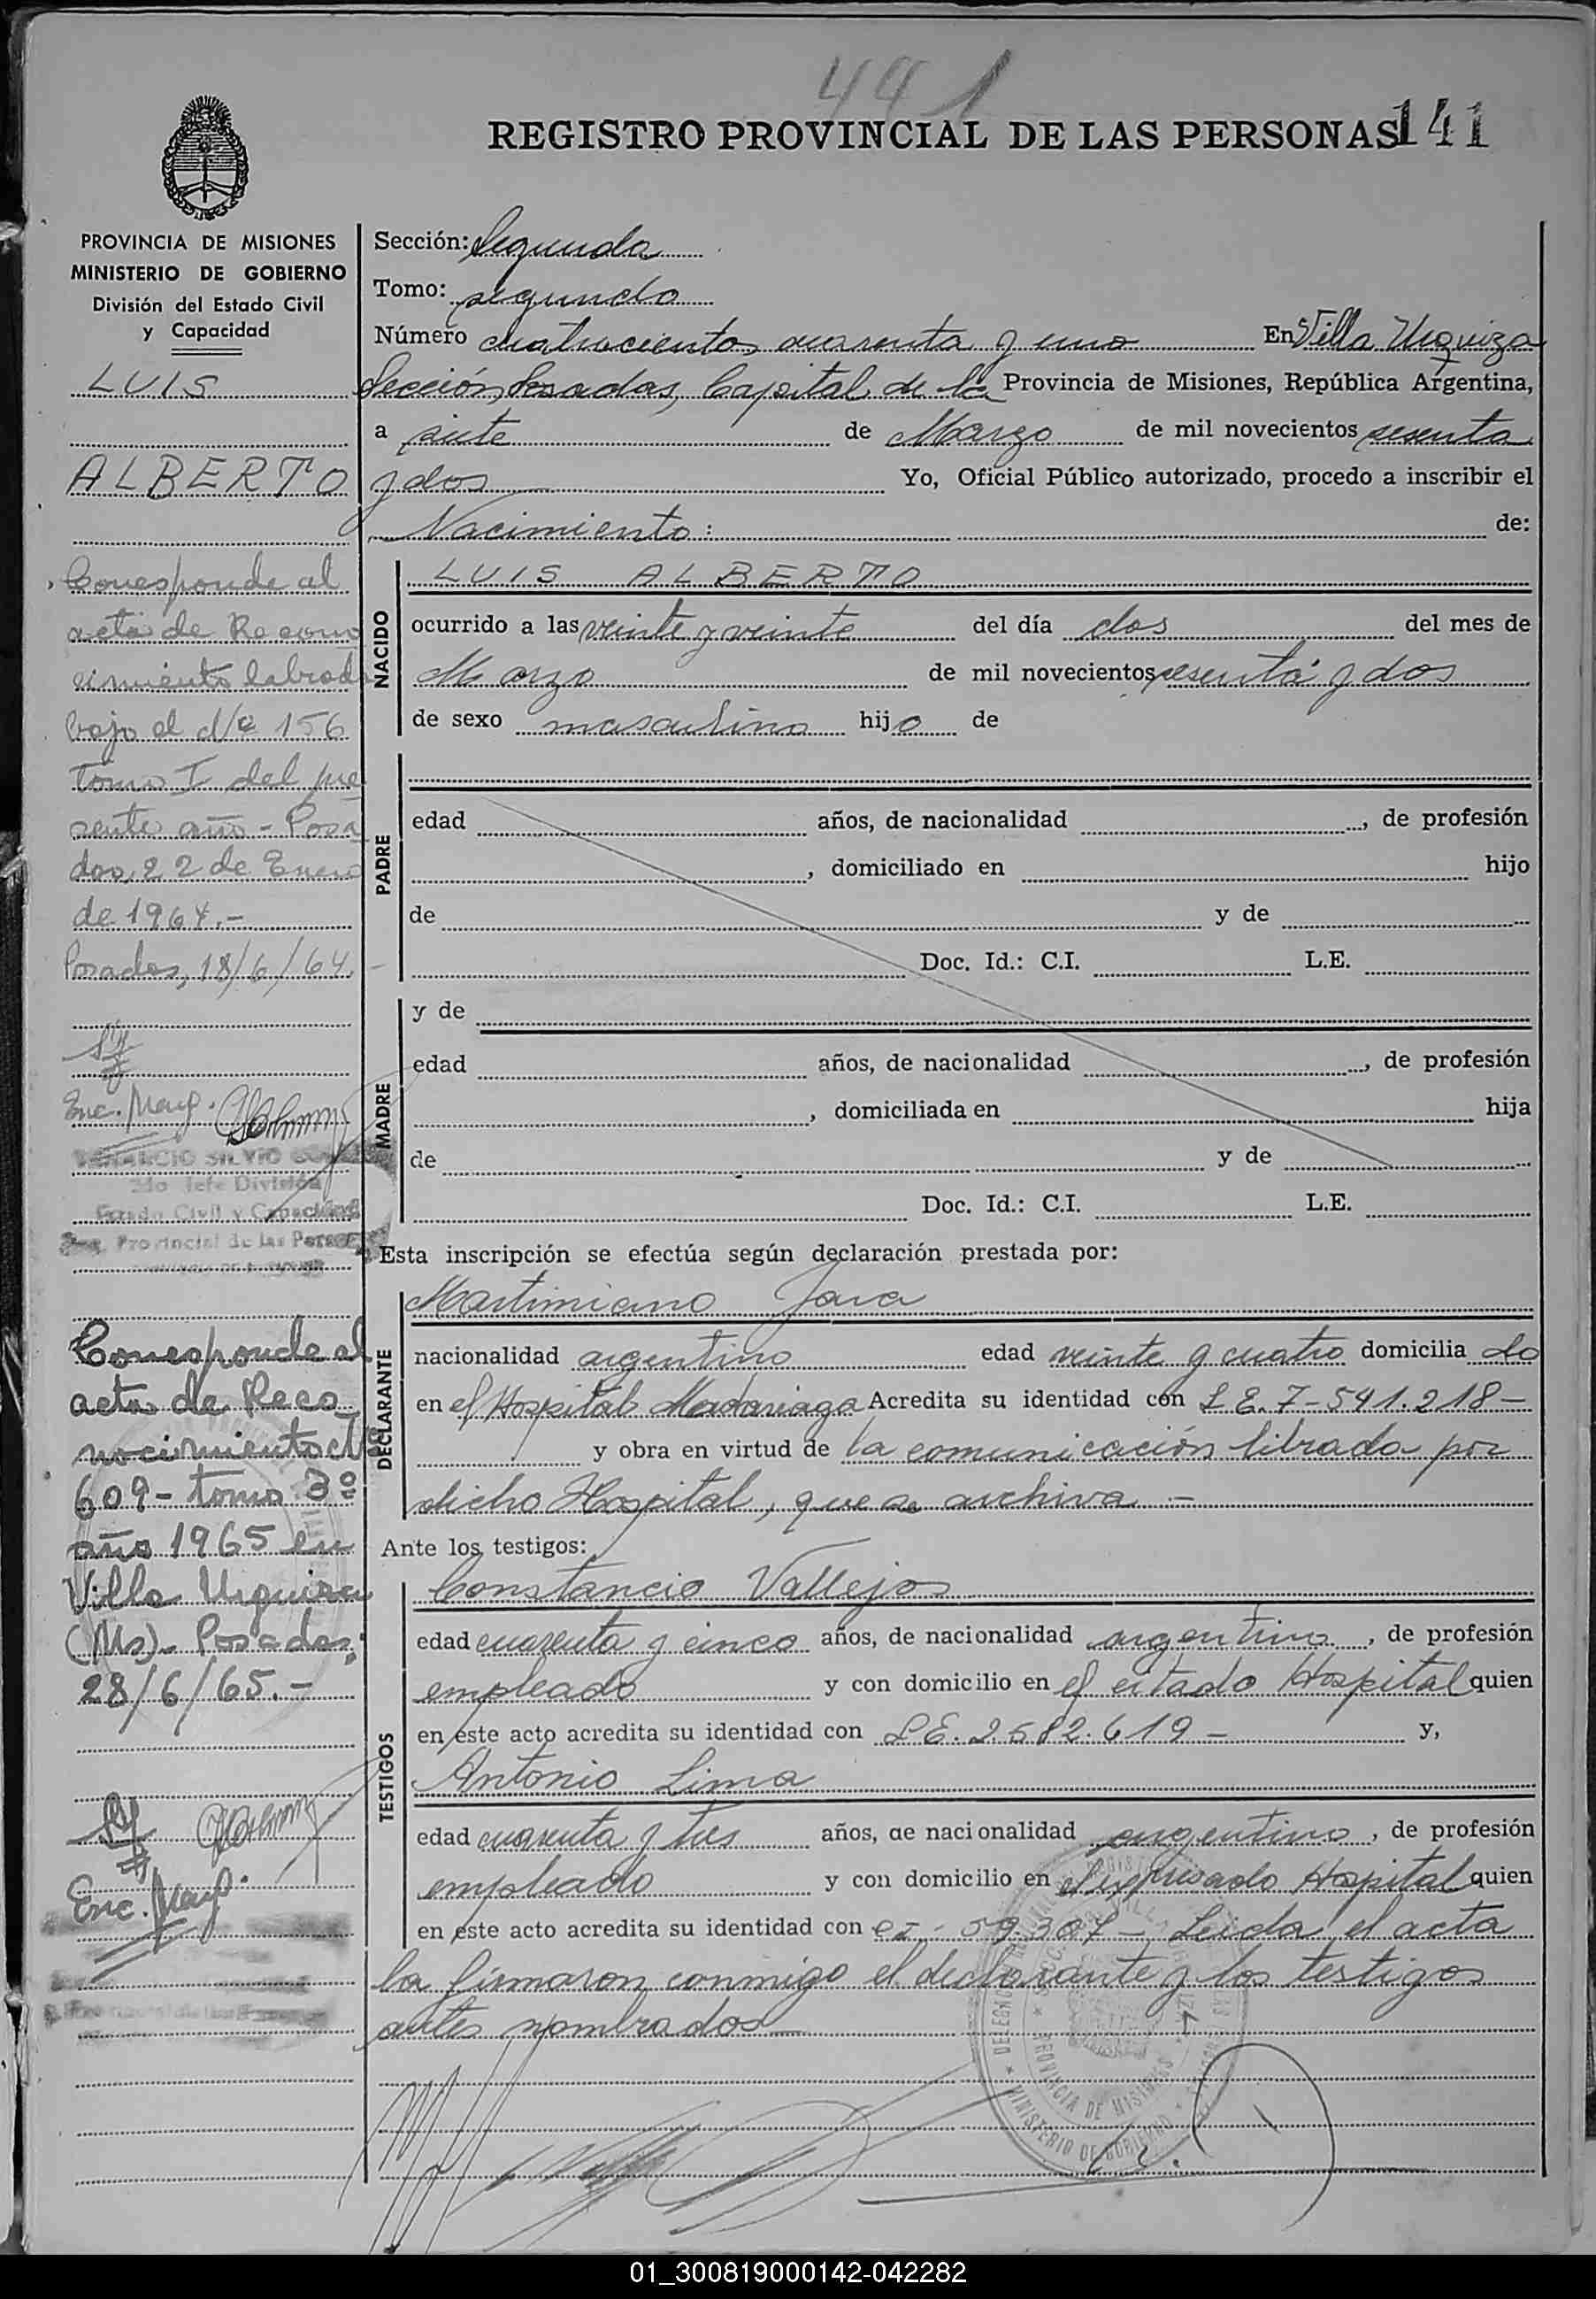 441
REGISTRO PROVINCIAL DE LAS PERSONAS 141
PROVINCIA DE MISIONES
MINISTERIO DE GOBIERNO
División del Estado Civil
y Capacidad
LUIS
ALBERTO
Corresponde al
acta de Recono
cimiento labrada
bajo el Nº 156
Tomo I del pre
sente año - Posa
das, 22 de Enero
de 1964.-
Posadas, 18/6/64.
Enc. Mayp.
2do Jefe División
Estado Civil y Capacidad
Provincial de las Personas
Corresponde al
acta de Reco
nocimiento Nº
609 - tomo 3º
año 1965 en
Villa Urquiza
(Ms) - Posadas
28/6/65.-
Enc. Mayp.
Sección: Segunda
Tomo: segundo
Número cuatrocientos cuarenta y uno En Villa Urquiza
Sección Posadas, Capital de la Provincia de Misiones, República Argentina,
a siete de Marzo de mil novecientos sesenta
y dos Yo, Oficial Público autorizado, procedo a inscribir el
Nacimiento: de:
NACIDO
LUIS ALBERTO
ocurrido a las veinte y veinte del día dos del mes de
Marzo de mil novecientos sesenta y dos
de sexo masculino hijo de
PADRE
edad años, de nacionalidad , de profesión
, domiciliado en hijo
de y de
Doc. Id.: C.I. L.E.
MADRE
y de
edad años, de nacionalidad , de profesión
, domiciliada en hija
de y de
Doc. Id.: C.I. L.E.
Esta inscripción se efectúa según declaración prestada por:
DECLARANTE
Martimiano Jara
nacionalidad argentino edad veinte y cuatro domicilia do
en el Hospital Madariaga Acredita su identidad con L.E. 7-541.218-
y obra en virtud de la comunicación librada por
dicho Hospital, que se archiva.-
Ante los testigos:
TESTIGOS
Constancio Vallejos
edad cuarenta y cinco años, de nacionalidad argentino, de profesión
empleado y con domicilio en el citado Hospital quien
en este acto acredita su identidad con L.E. 2.582.619- y,
Antonio Lima
edad cuarenta y tres años, de nacionalidad argentino, de profesión
empleado y con domicilio en el expresado Hospital quien
en este acto acredita su identidad con CI - 59.307 - Leida el acta
la firmaron conmigo el declarante y los testigos
antes nombrados
PROVINCIA DE MISIONES
MINISTERIO DE GOBIERNO
01_300819000142-042282